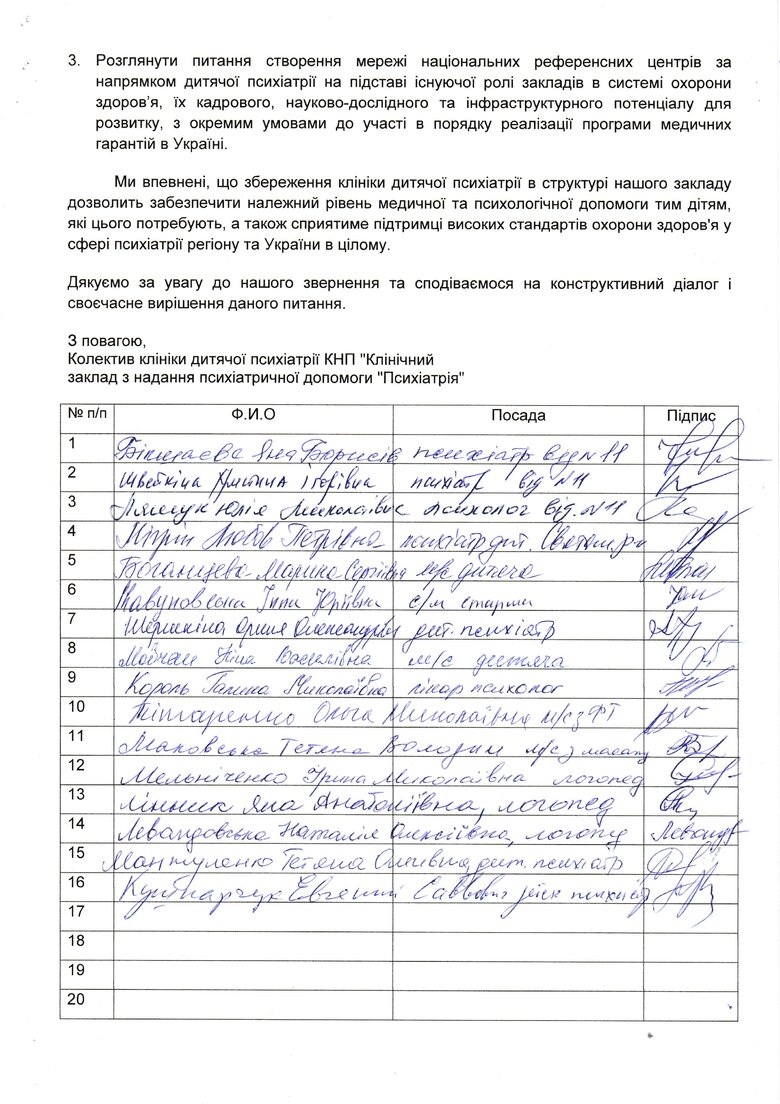 3. Розглянути питання створення мережі національних референсних центрів за
напрямком дитячої психіатрії на підставі існуючої ролі закладів в системі охорони
здоров'я, їх кадрового, науково-дослідного та інфраструктурного потенціалу для
розвитку, з окремим умовами до участі в порядку реалізації програми медичних
гарантій в Україні.
Ми впевнені, що збереження клініки дитячої психіатрії в структурі нашого закладу
дозволить забезпечити належний рівень медичної та психологічної допомоги тим дітям,
які цього потребують, а також сприятиме підтримці високих стандартів охорони здоров'я у
сфері психіатрії регіону та України в цілому.
Дякуємо за увагу до нашого звернення та сподіваємося на конструктивний діалог і
своєчасне вирішення даного питання.
З повагою,
Колектив клініки дитячої психіатрії КНП "Клінічний
заклад з надання психіатричної допомоги "Психіатрія"
№ п/п Ф.И.О Посада Підпис
1 Яна Борисів психіатр від №11
2 Ігорівна психіатр від №11
3 Юлія Миколаївна психолог від. №11
4 Любов Петрівна психіатр дит.
5 Марина Сергіївна м/с дитяча
6 Інна Юріївна с/м старша
7 Олександрівн дит. психіатр
8 Ніна Василівна м/с дитяча
9 Король Галина Миколаївна лікар психолог
10 Тітаренко Ольга Миколаївна м/с з ФТ
11 Маковська Тетяна Володим м/с з масажу
12 Мельніченко Ірина Миколаївна логопед
13 Лінник Яна Анатоліївна, логопед
14 Левандовська Наталія Олексіївна, логопед
15 Мантуленко Тетяна дит. психіатр
16 Евгений Саввович
17
18
19
20